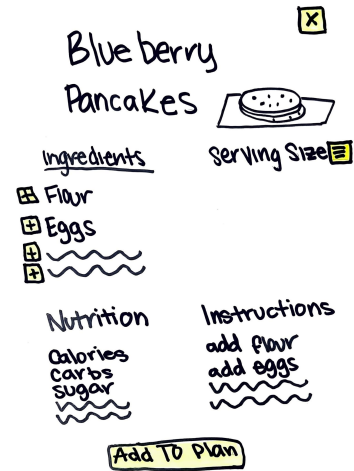 X
Blueberry
Pancakes
Ingredients
Serving Size
+ Flour
+ Eggs
+
+
Nutrition
Calories
carbs
sugar
Instructions
add flour
add eggs
Add To Plan